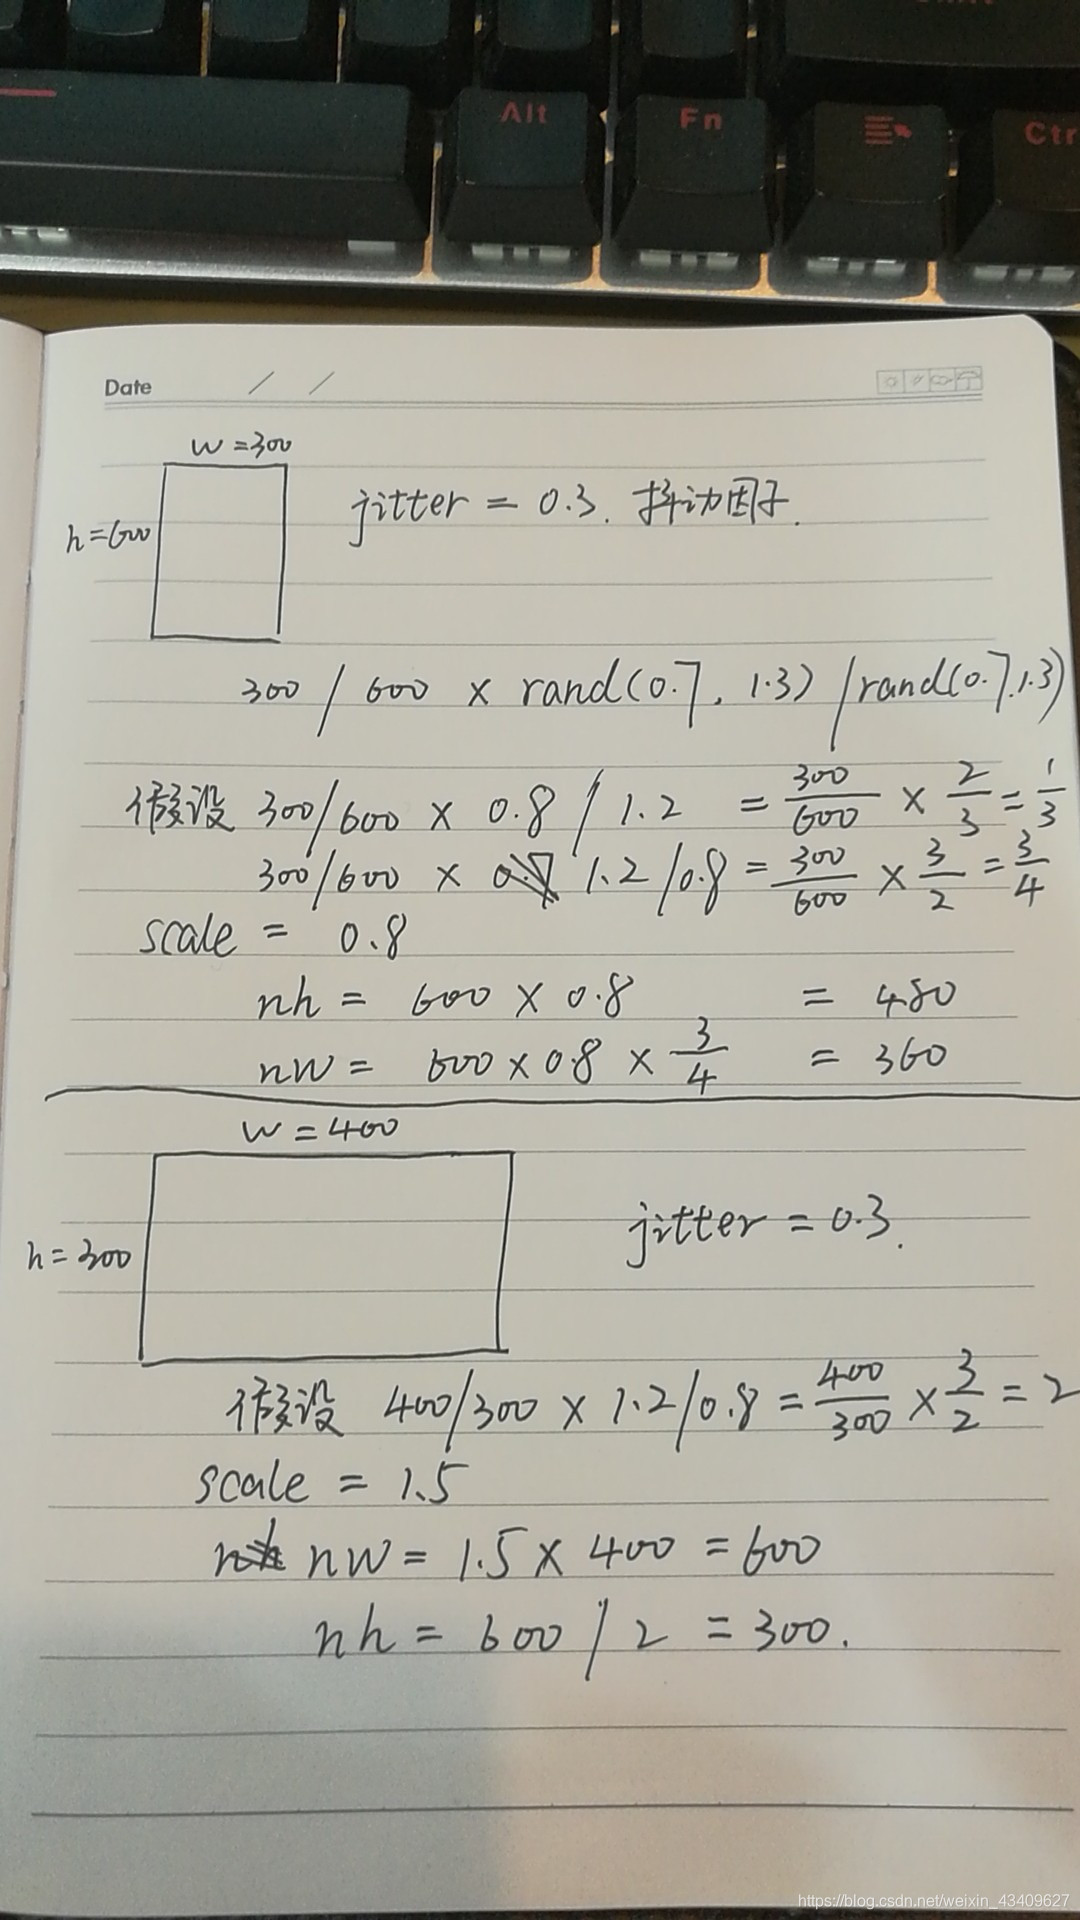 Alt Fn Ctr
Date / /
w=300
jitter = 0.3. 抖动因子.
h=600
300 / 600 × rand(0.7, 1.3) / rand(0.7, 1.3)
假设 300/600 × 0.8 / 1.2 = 300/600 × 2/3 = 1/3
300/600 × 1.2/0.8 = 300/600 × 3/2 = 3/4
scale = 0.8
nh = 600 × 0.8 = 480
nw = 600 × 0.8 × 3/4 = 360
w = 400
jitter = 0.3.
h = 300
假设 400/300 × 1.2/0.8 = 400/300 × 3/2 = 2
scale = 1.5
nw = 1.5 × 400 = 600
nh = 600 / 2 = 300.
https://blog.csdn.net/weixin_43409627